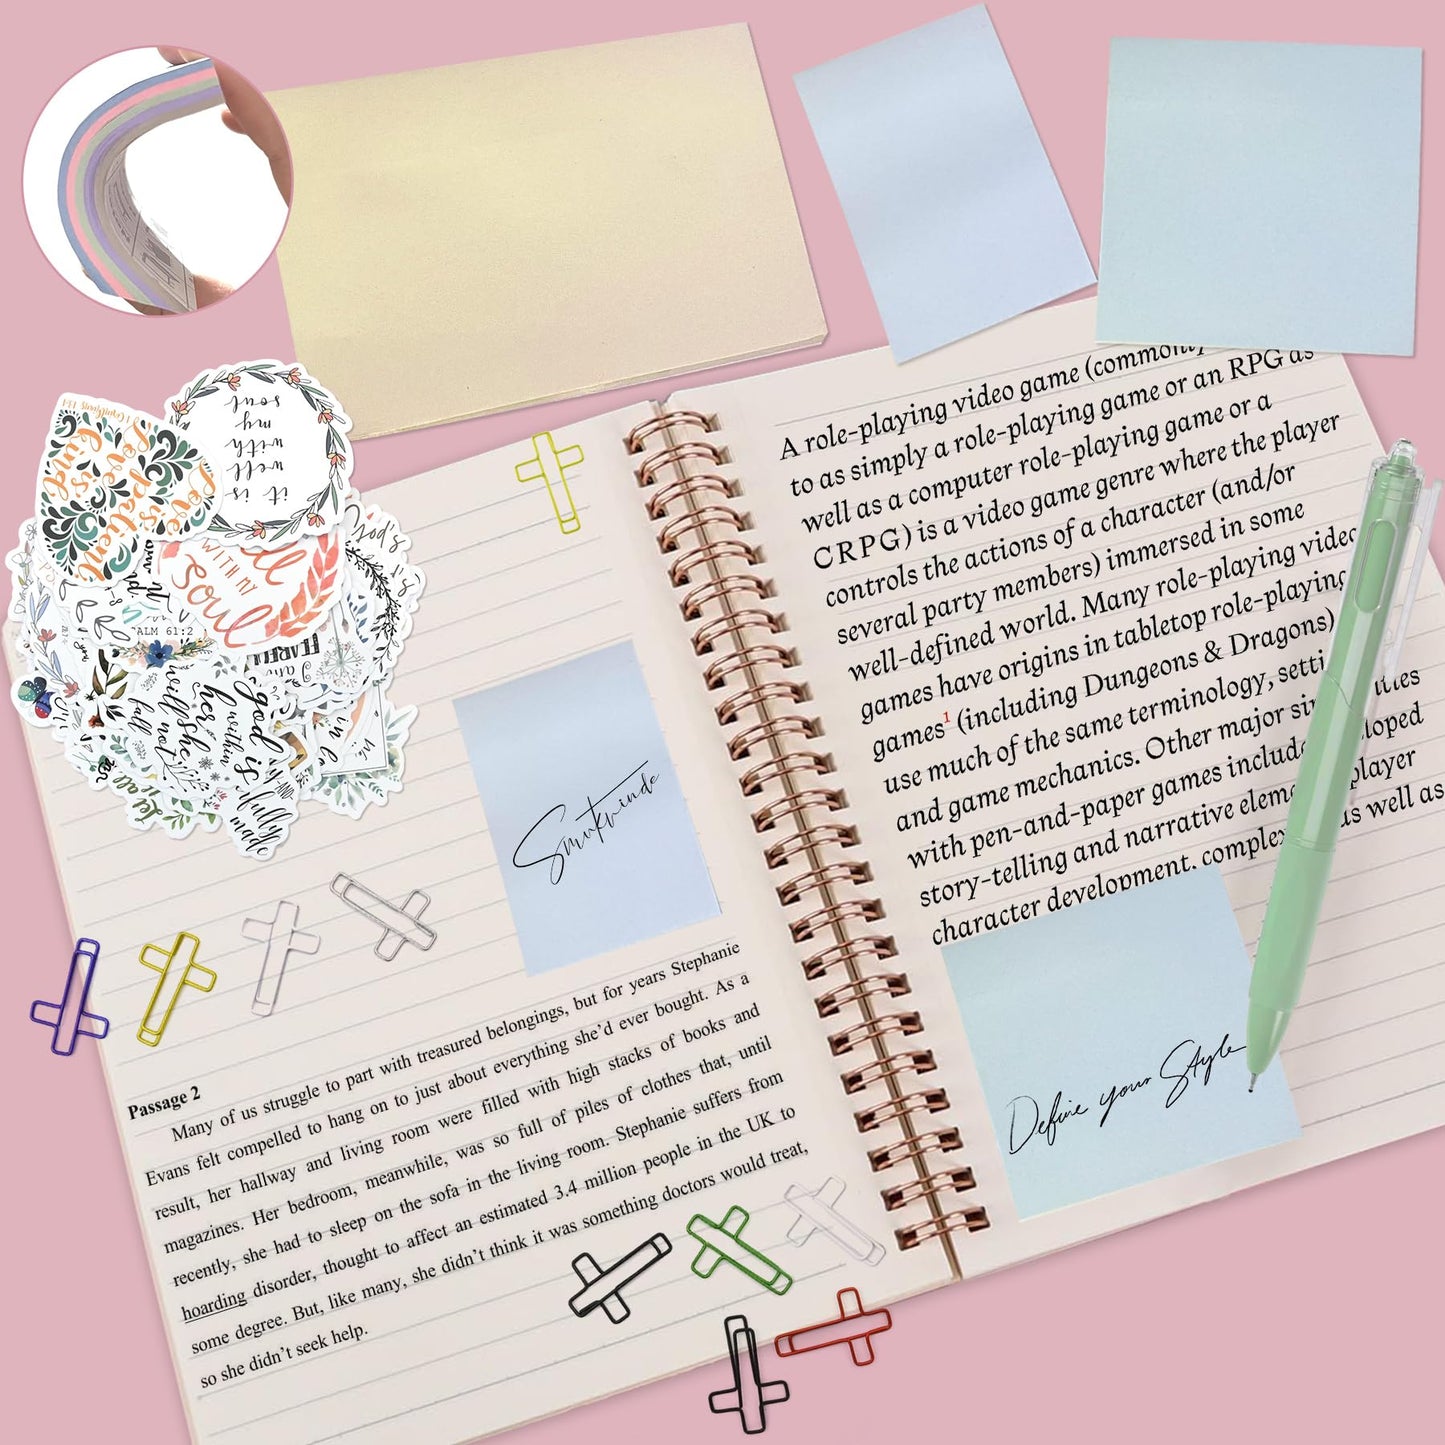 it is
well
with
my
soul
love is
patient
love is
kind
WITH MY
soul
PSALM 61:2
FEARFULLY
god is
within
her
she
will not
fall
made
Let all
Smukwinde
Passage 2
Many of us struggle to part with treasured belongings, but for years Stephanie
Evans felt compelled to hang on to just about everything she'd ever bought. As a
result, her hallway and living room were filled with high stacks of books and
magazines. Her bedroom, meanwhile, was so full of piles of clothes that, until
recently, she had to sleep on the sofa in the living room. Stephanie suffers from
hoarding disorder, thought to affect an estimated 3.4 million people in the UK to
some degree. But, like many, she didn't think it was something doctors would treat,
so she didn't seek help.
A role-playing video game (commonly
to as simply a role-playing game or an RPG as
well as a computer role-playing game or a
CRPG) is a video game genre where the player
controls the actions of a character (and/or
several party members) immersed in some
well-defined world. Many role-playing video
games have origins in tabletop role-playing
games¹ (including Dungeons & Dragons)
use much of the same terminology, setti
and game mechanics. Other major sim ities
with pen-and-paper games include loped
story-telling and narrative elem player
character development, complex as well as
Define your Style